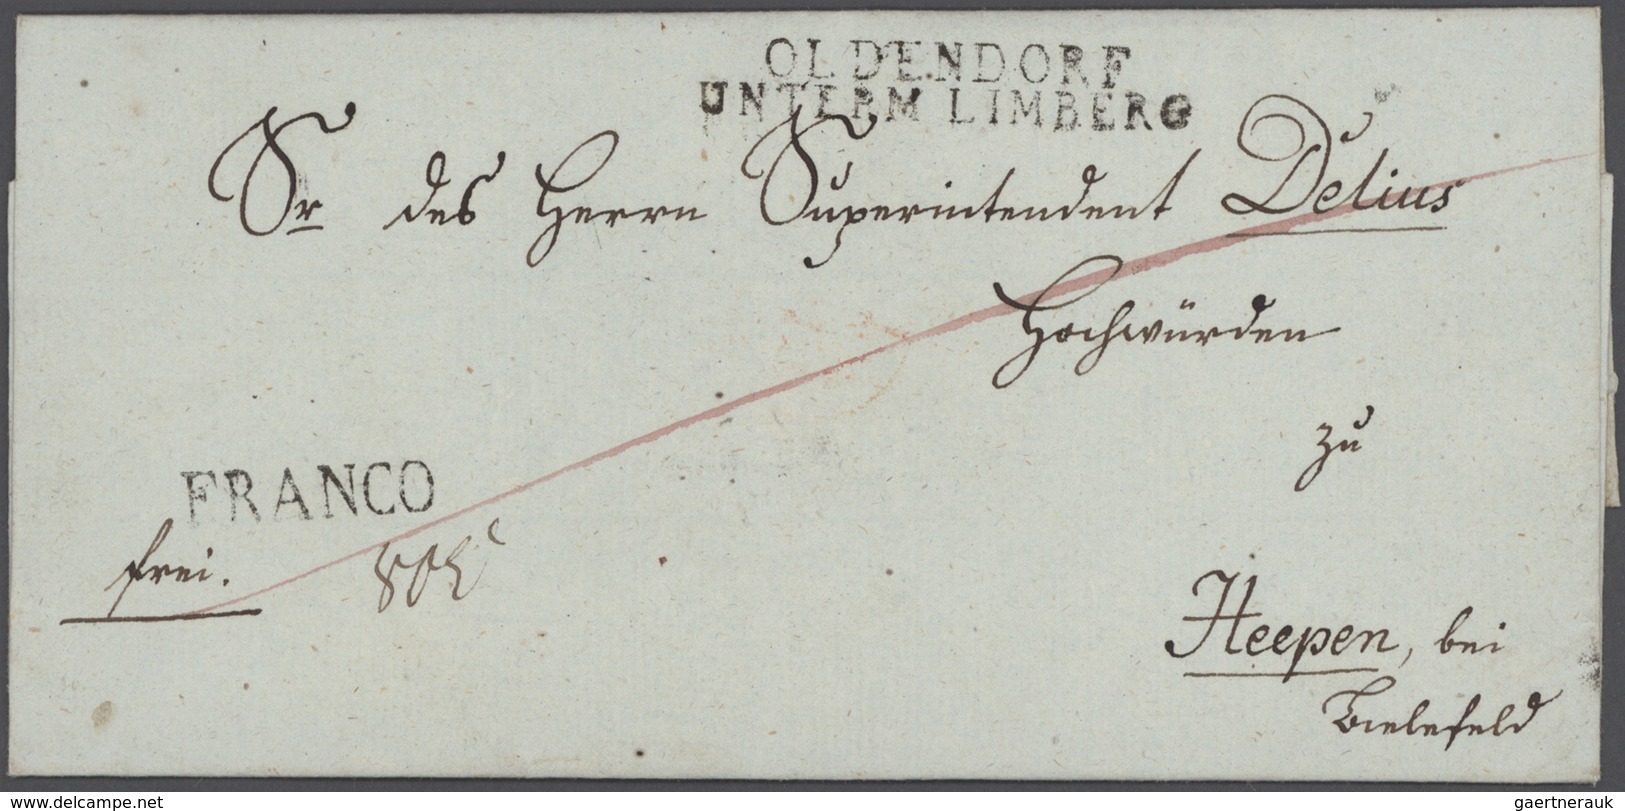 OLDENDORF
UNTERM LIMBERG
Sr des Herrn Superintendent Delius
Hochwürden
zu
FRANCO
frei.
Heepen, bei
Bielefeld
www.delcampe.net
gaertnerauk